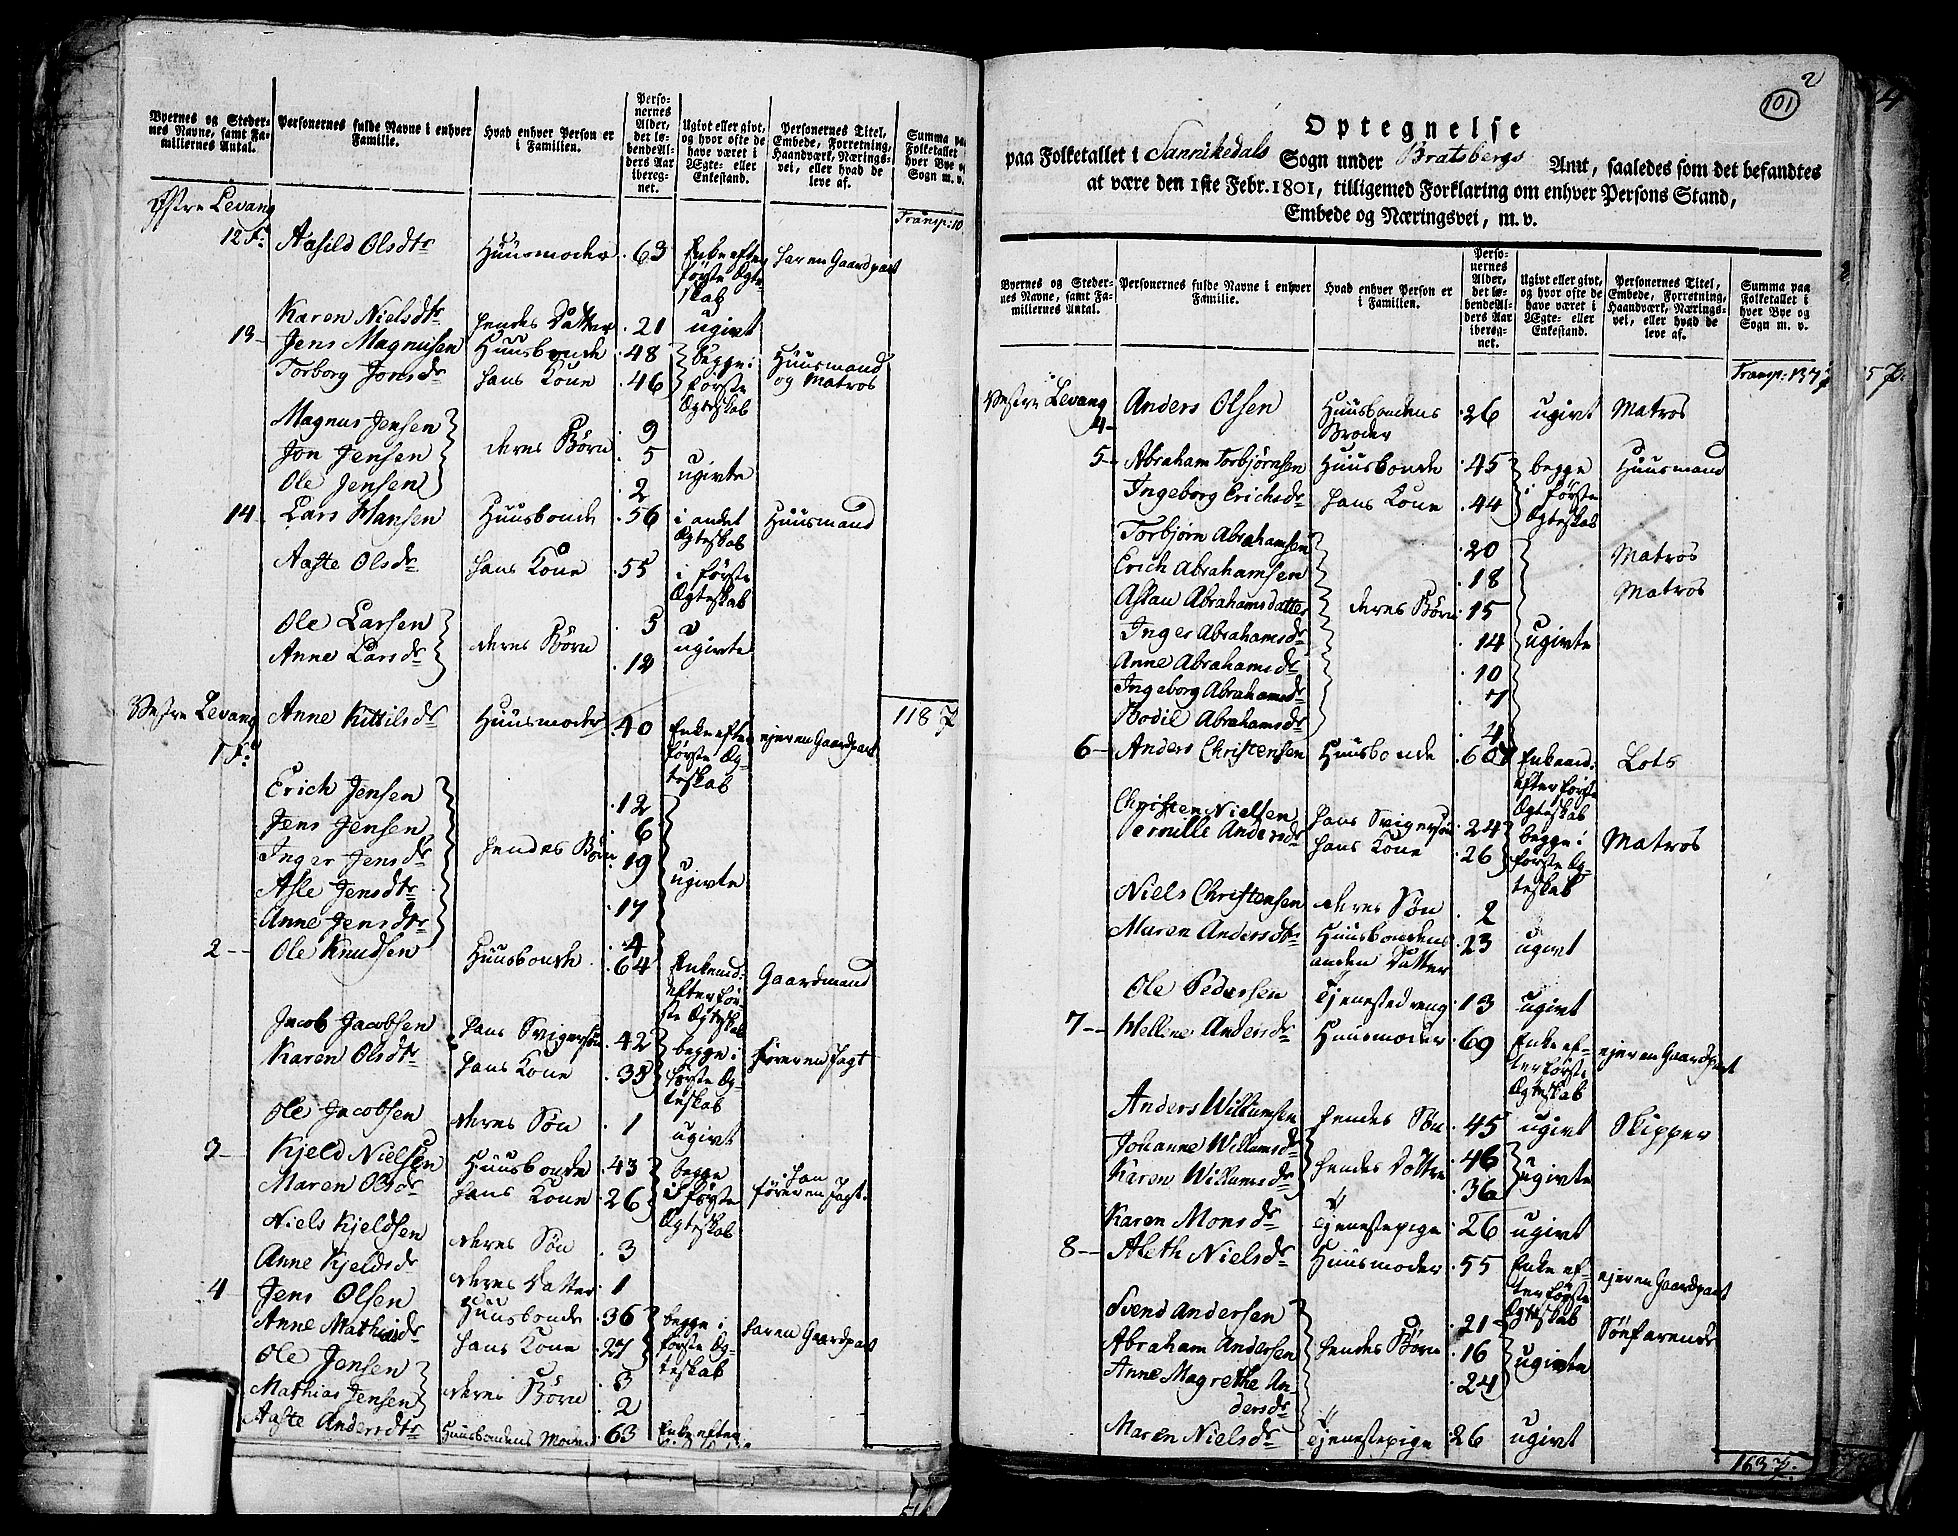 Byernes og Stedernes Navne, samt Familiernes Antal. | Personernes fulde Navne i enhver Familie. | Hvad enhver Person er i Familien. | Personernes Alder, det løbende Alders Aar iberegnet. | Ugivt eller givt, og hvor ofte de have været i Ægte- eller Enkestand. | Personernes Titel, Embede, Forretning, Haandværk, Næringsvei, eller hvad de leve af. | Summa paa Folketallet i hver Bye og Sogn m. v.
Østre Levang
12 F. Aasild Olsdtr Huusmoder 63 Enke efter første Ægteskab har en Gaardpart
Karen Nielsdtr hendes Datter 21 ugivt
13 Jens Magnusen Huusbonde 48 begge i første Ægteskab Huusmand og Matros
Torborg Jonsdr hans Kone 46
Magnus Jensen deres Børn 9 ugivte
Jon Jensen 5
Ole Jensen 2
14 Lars Hansen Huusbonde 56 i andet Ægteskab Huusmand
Aaste Olsdr hans Kone 55 i første Ægteskab
Ole Larsen deres Børn 5 ugivte
Anne Larsdr 12
118
Vestre Levang
1 F. Anne Kittilsdr Huusmoder 40 Enke efter første Ægteskab ejer en Gaardpart
Erich Jensen hendes Børn 12 ugivte
Jens Jensen 6
Inger Jensdr 19
Asle Jensdtr 17
Anne Jensdtr 4
2 Ole Knudsen Huusbonde 64 Enkemd: efter første Ægteskab Gaardmand
Jacob Jacobsen hans Svigersøn 42 begge i første Ægteskab fører en Jagt
Karen Olsdtr hans Kone 38
Ole Jacobsen deres Søn 1 ugivt
3 Kjeld Nielsen Huusbonde 43 begge i første Ægteskab han fører en Jagt
Maren Olsdr hans Kone 26
Niels Kjeldsen deres Søn 3
Anne Kjeldsdr deres Datter 1
4 Jens Olsen Huusbonde 36 begge i første Ægteskab har en Gaardpart
Anne Mathisdr hans Kone 27
Ole Jensen deres Børn 3
Mathias Jensen 2
Aaste Andersdtr Huusbondens Moder 63 Enke efter
2
101
Optegnelse
paa Folketallet i Sannikedals Sogn under Bratsbergs Amt, saaledes som det befandtes
at være den 1ste Febr. 1801, tilligemed Forklaring om enhver Persons Stand,
Embede og Næringsvei, m. v.
Byernes og Stedernes Navne, samt Familiernes Antal. | Personernes fulde Navne i enhver Familie. | Hvad enhver Person er i Familien. | Personernes Alder, det løbende Alders Aar iberegnet. | Ugivt eller givt, og hvor ofte de have været i Ægte- eller Enkestand. | Personernes Titel, Embede, Forretning, Haandværk, Næringsvei, eller hvad de leve af. | Summa paa Folketallet i hver Bye og Sogn m. v.
Transp: 137
Vestre Levang
4 Anders Olsen Huusbondens Broder 26 ugivt Matros
5 Abraham Torbjørnsen Huusbonde 45 begge i første Ægteskab Huusmand
Ingeborg Erichsdr hans Kone 44
Torbjørn Abrahamsen deres Børn 20 ugivte Matros
Erich Abrahamsen 18 Matros
Aslau Abrahamsdatter 15
Inger Abrahamsdr 14
Anne Abrahamsdr 10
Ingeborg Abrahamsdr 7
Bodil Abrahamsdr 4
6 Anders Christensen Huusbonde 60 Enkemd: efter første Ægteskab Lots
Christen Nielsen hans Svigersøn 24 begge i første Ægteskab Matros
Pernille Andersdr hans Kone 26
Niels Christensen deres Søn 2
Maren Andersdtr Huusbondens anden Datter 23 ugivt
Ole Pedersen Tjenestedreng 13 ugivt
7 Helline Andersdr Huusmoder 69 Enke efter første Ægteskab ejer en Gaardpart
Anders Willumsen hendes Søn 45 ugivt Skipper
Johanne Willumsdr hendes Døttre 46 ugivte
Karen Willumsdr 36
Karen Monsdr Tjenestepige 26 ugivt
8 Aleth Nielsdr Huusmoder 55 Enke efter første Ægteskab ejer en Gaardpart
Svend Andersen hendes Børn 21 ugivte Søefarende
Abraham Andersen 16
Anne Magrethe Andersdr 24
Maren Nielsdr Tjenestepige 26 ugivt
163